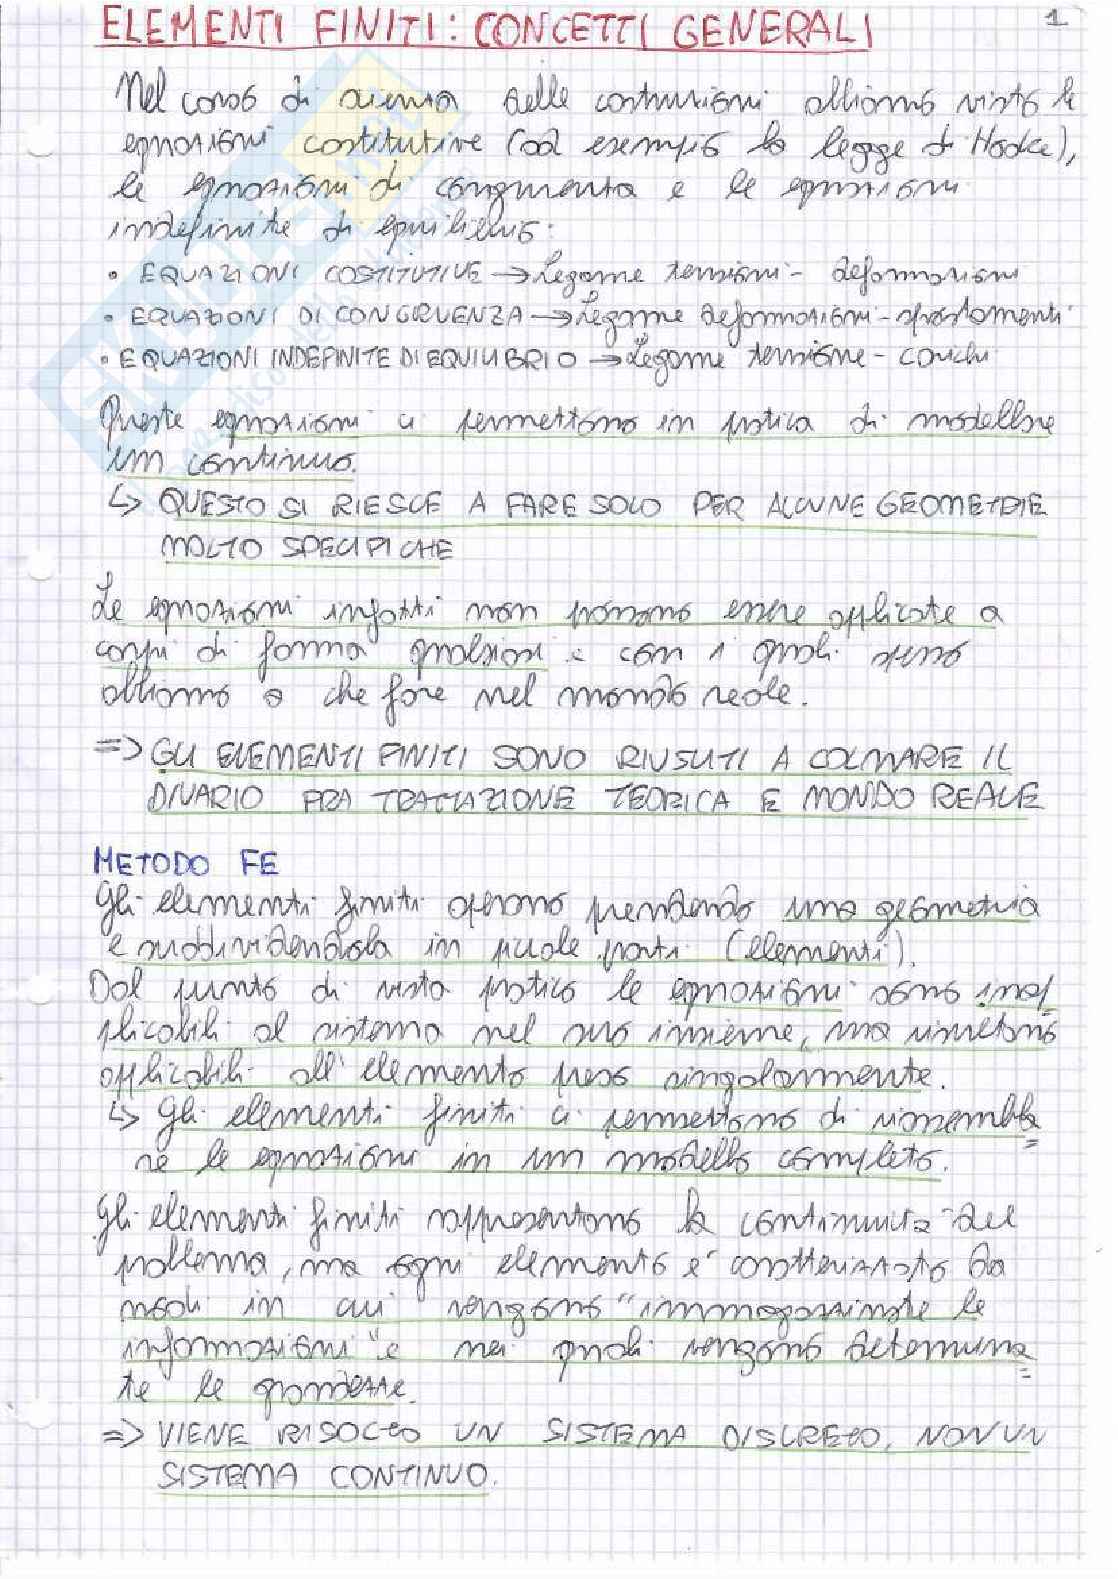 ELEMENTI FINITI: CONCETTI GENERALI 1
Nel corso di scienza delle costruzioni abbiamo visto le
equazioni costitutive (ad esempio la legge di Hooke),
le equazioni di congruenza e le equazioni
indefinite di equilibrio:
• EQUAZIONI COSTITUTIVE → Legame tensioni - deformazioni
• EQUAZIONI DI CONGRUENZA → Legame deformazioni - spostamenti
• EQUAZIONI INDEFINITE DI EQUILIBRIO → Legame tensione - carichi
Queste equazioni ci permettono in pratica di modellare
un continuo.
↳ QUESTO SI RIESCE A FARE SOLO PER ALCUNE GEOMETRIE
MOLTO SPECIFICHE
Le equazioni infatti non possono essere applicate a
corpi di forma qualsiasi e con i quali spesso
abbiamo a che fare nel mondo reale.
=> GLI ELEMENTI FINITI SONO RIUSCITI A COLMARE IL
DIVARIO FRA TRATTAZIONE TEORICA E MONDO REALE
METODO FE
Gli elementi finiti operano prendendo una geometria
e suddividendola in piccole parti (elementi).
Dal punto di vista pratico le equazioni sono inap
plicabili al sistema nel suo insieme, ma risultano
applicabili all'elemento preso singolarmente.
↳ Gli elementi finiti ci permettono di riassembla=
re le equazioni in un modello completo.
Gli elementi finiti rappresentano la continuità del
problema, ma ogni elemento è caratterizzato da
nodi in cui vengono "immagazzinate le
informazioni" e nei quali vengono determina=
te le grandezze.
=> VIENE RISOLTO UN SISTEMA DISCRETO, NON UN
SISTEMA CONTINUO.